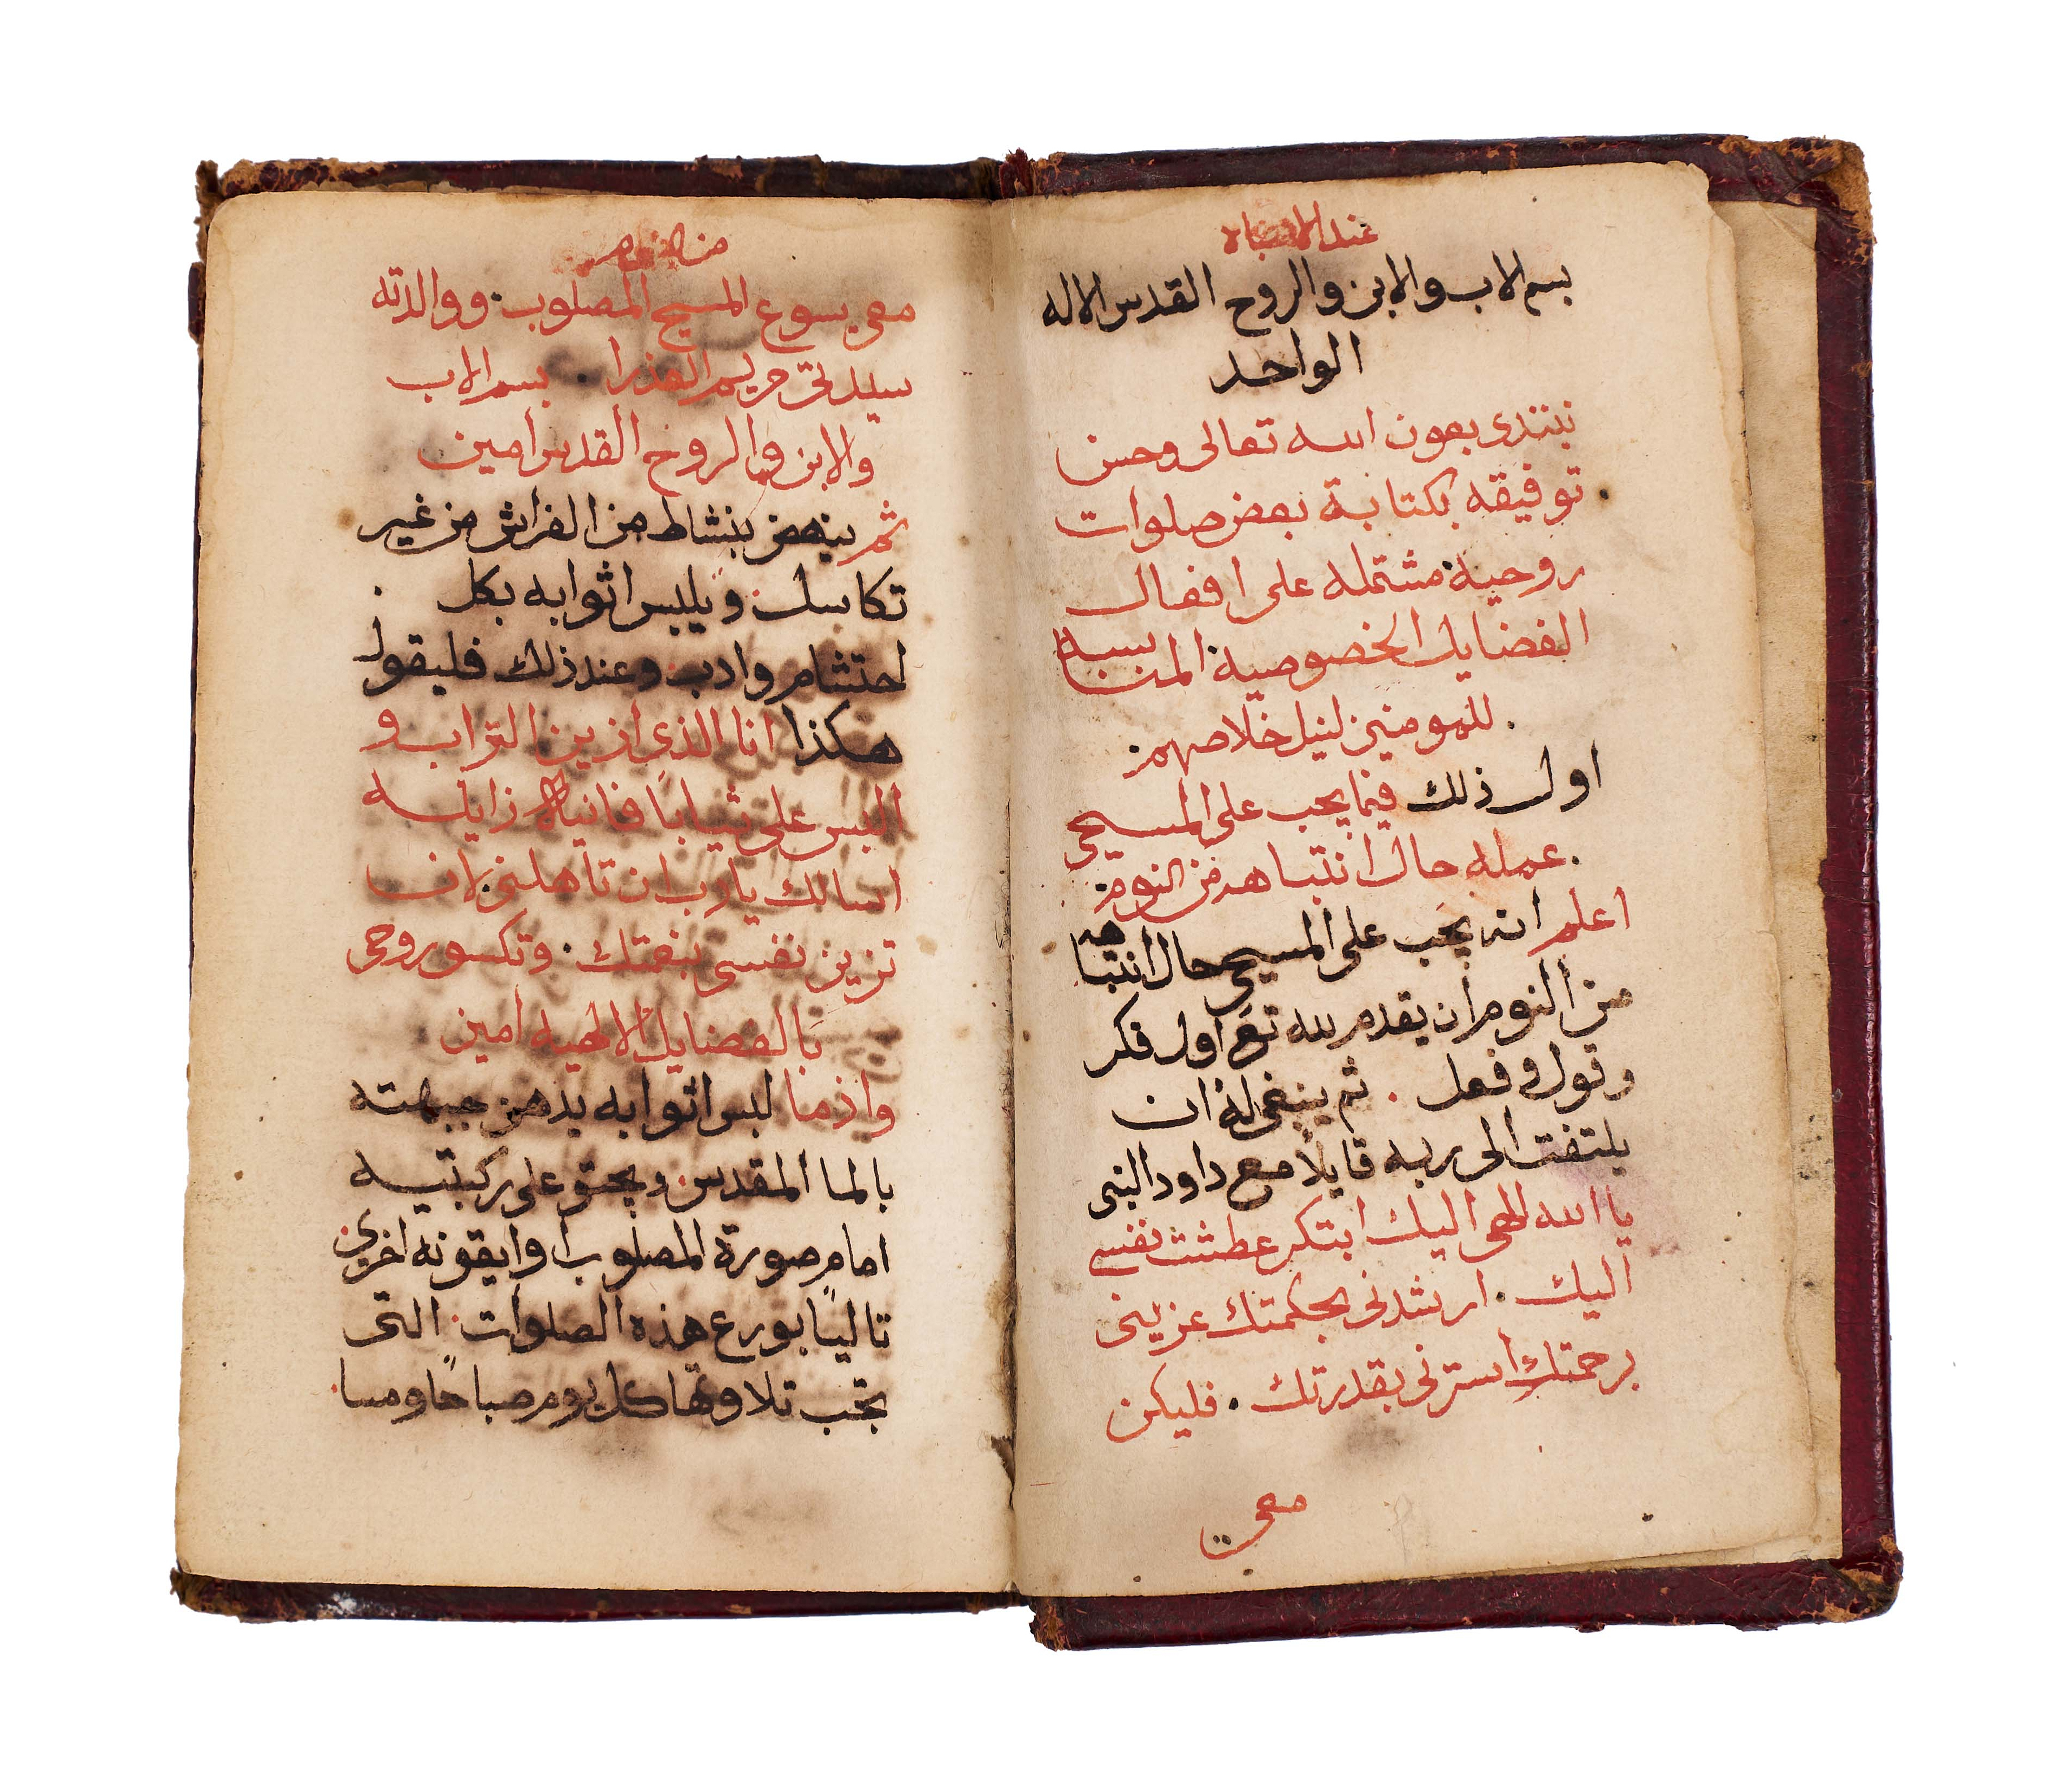 عند الانتباه
بسم الاب والابن والروح القدس الاله
الواحد
نبتدى بعون الله تعالى وحسن
توفيقه بكتابة بعض صلوات
روحية مشتمله على افعال
الفضايل الخصوصية المناسبة
للمومنين لنيل خلاصهم
اول ذلك فيما يجب على المسيحي
عمله حال انتباهه من النوم
اعلم انه يجب على المسيحي حال انتباهه
من النوم ان يقدم لله تع اول فكر
وقول وفعل . ثم ينبغي له ان
يلتفت الى ربه قايلاً مع داود النبى
يا الله الهى اليك ابتكر عطشت نفسى
اليك . ارشدنى بحكمتك عزينى
برحمتك استرنى بقدرتك . فليكن
معى
من النوم
معى يسوع المسيح المصلوب . ووالدته
سيدتى مريم العذرا . بسم الاب
والابن والروح القدس امين
ثم ينهض بنشاط من الفراش من غير
تكاسل . ويلبس اثوابه بكل
احتشام وادب وعند ذلك فليقول
هكذا انا الذي ازين التراب و
البس على ثياباً فانية زايله
اسالك يارب ان تاهلنى لان
تزين نفسى بنعمتك . وتكسو روحى
بالفضايل الالهيه امين
واذما لبس اثوابه يدهن جبهته
بالما المقدس ويجثو على ركبتيه
امام صورة المصلوب او ايقونه اخرى
تالياً بورع هذه الصلوات التى
يجب تلاوتها كل يوم صباحاً ومسا